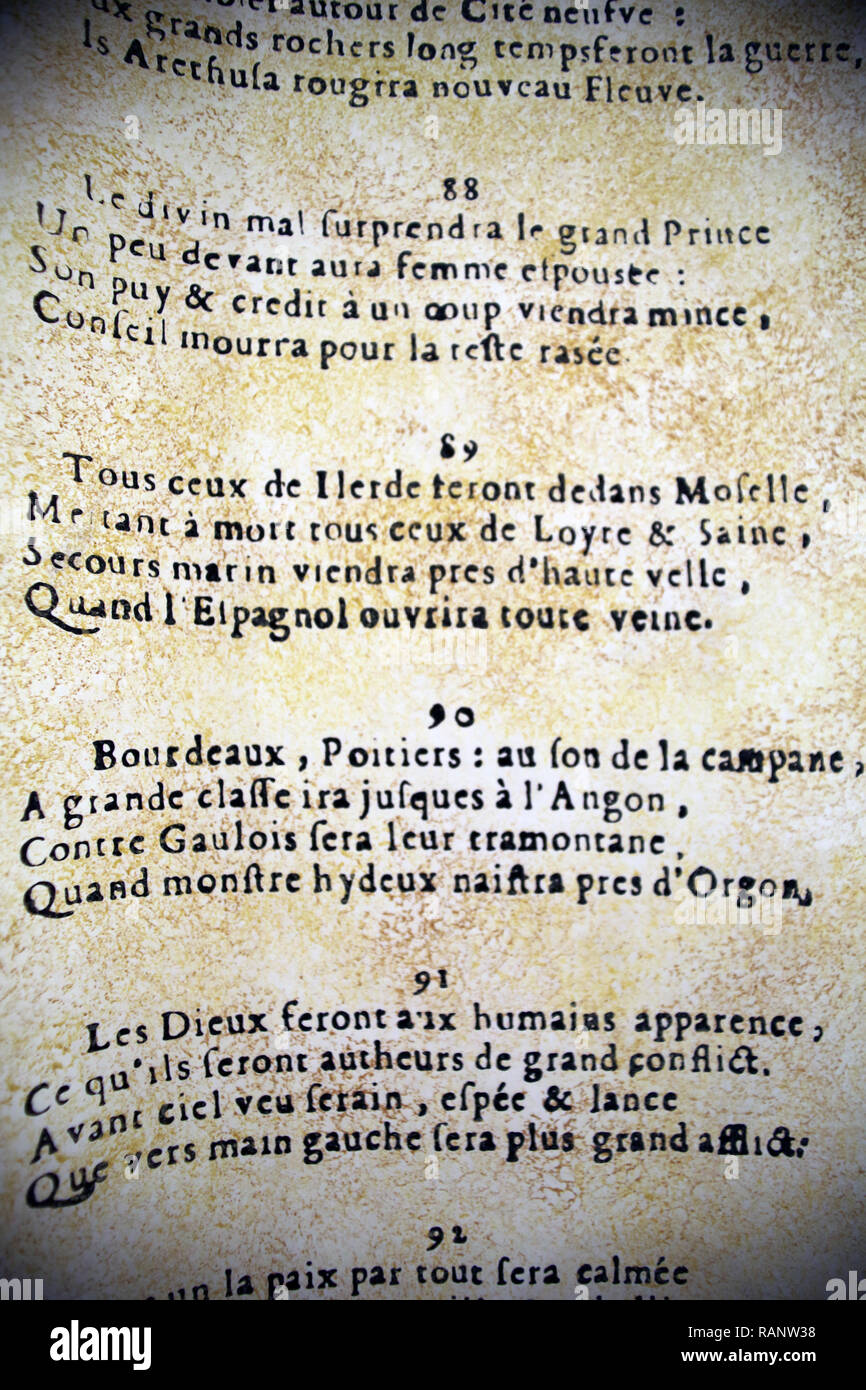 autour de Cité neufve :
grands rochers long tempsferont la guerre,
Arethuſa rougira nouveau Fleuve.
88
Le divin mal ſurprendra le grand Prince
Un peu devant aura femme eſpousée :
Son puy & credit à un coup viendra mince,
Conſeil mourra pour la teſte rasée
89
Tous ceux de Ilerde ſeront dedans Moſelle,
Mettant à mort tous ceux de Loyre & Saine,
Secours marin viendra pres d'haute velle,
Quand l'Eſpagnol ouvrira toute veine.
90
Bourdeaux, Poitiers : au ſon de la campane,
A grande claſſe ira juſques à l'Angon,
Contre Gaulois ſera leur tramontane,
Quand monſtre hydeux naiſtra pres d'Orgon,
91
Les Dieux feront aux humains apparence,
Ce qu'ils ſeront autheurs de grand conflict.
Avant ciel veu ſerain, eſpée & lance
Que vers main gauche ſera plus grand afflict.
92
la paix par tout ſera calmée
alamy
Image ID: RANW38
www.alamy.com